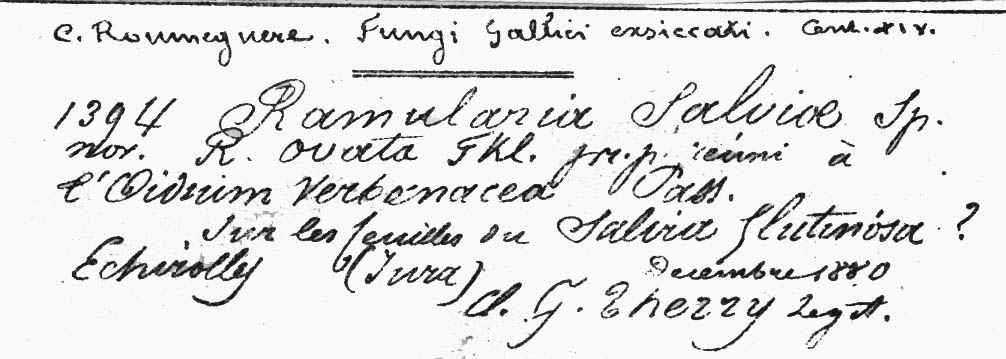 C. Roumeguere. Fungi Gallici exsiccati. Cent. XIV.
1394 Ramularia Salviæ Sp.
nov. R. ovata Fkl. pr. p. réuni à
l'Oidium Verbenacea Pass.
Sur les feuilles du Salvia glutinosa ?
Echirolles (Jura) Decembre 1880
Cl. G. Therry Legit.